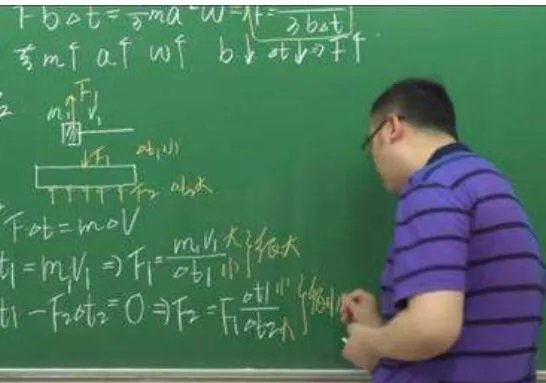 Fb△t=⅓ma²w⇒F=／3b△t
若m↑ a↑ w↑ b↓ △t↓⇒F↑
F₁
m₁ v₁
F₁ △t₁小
F₂ △t₂大
F△t=m△V
t₁=m₁V₁⇒F₁=m₁V₁大/△t₁小}很大
t₁-F₂△t₂=0⇒F₂=F₁△t₁小/△t₂大}很小